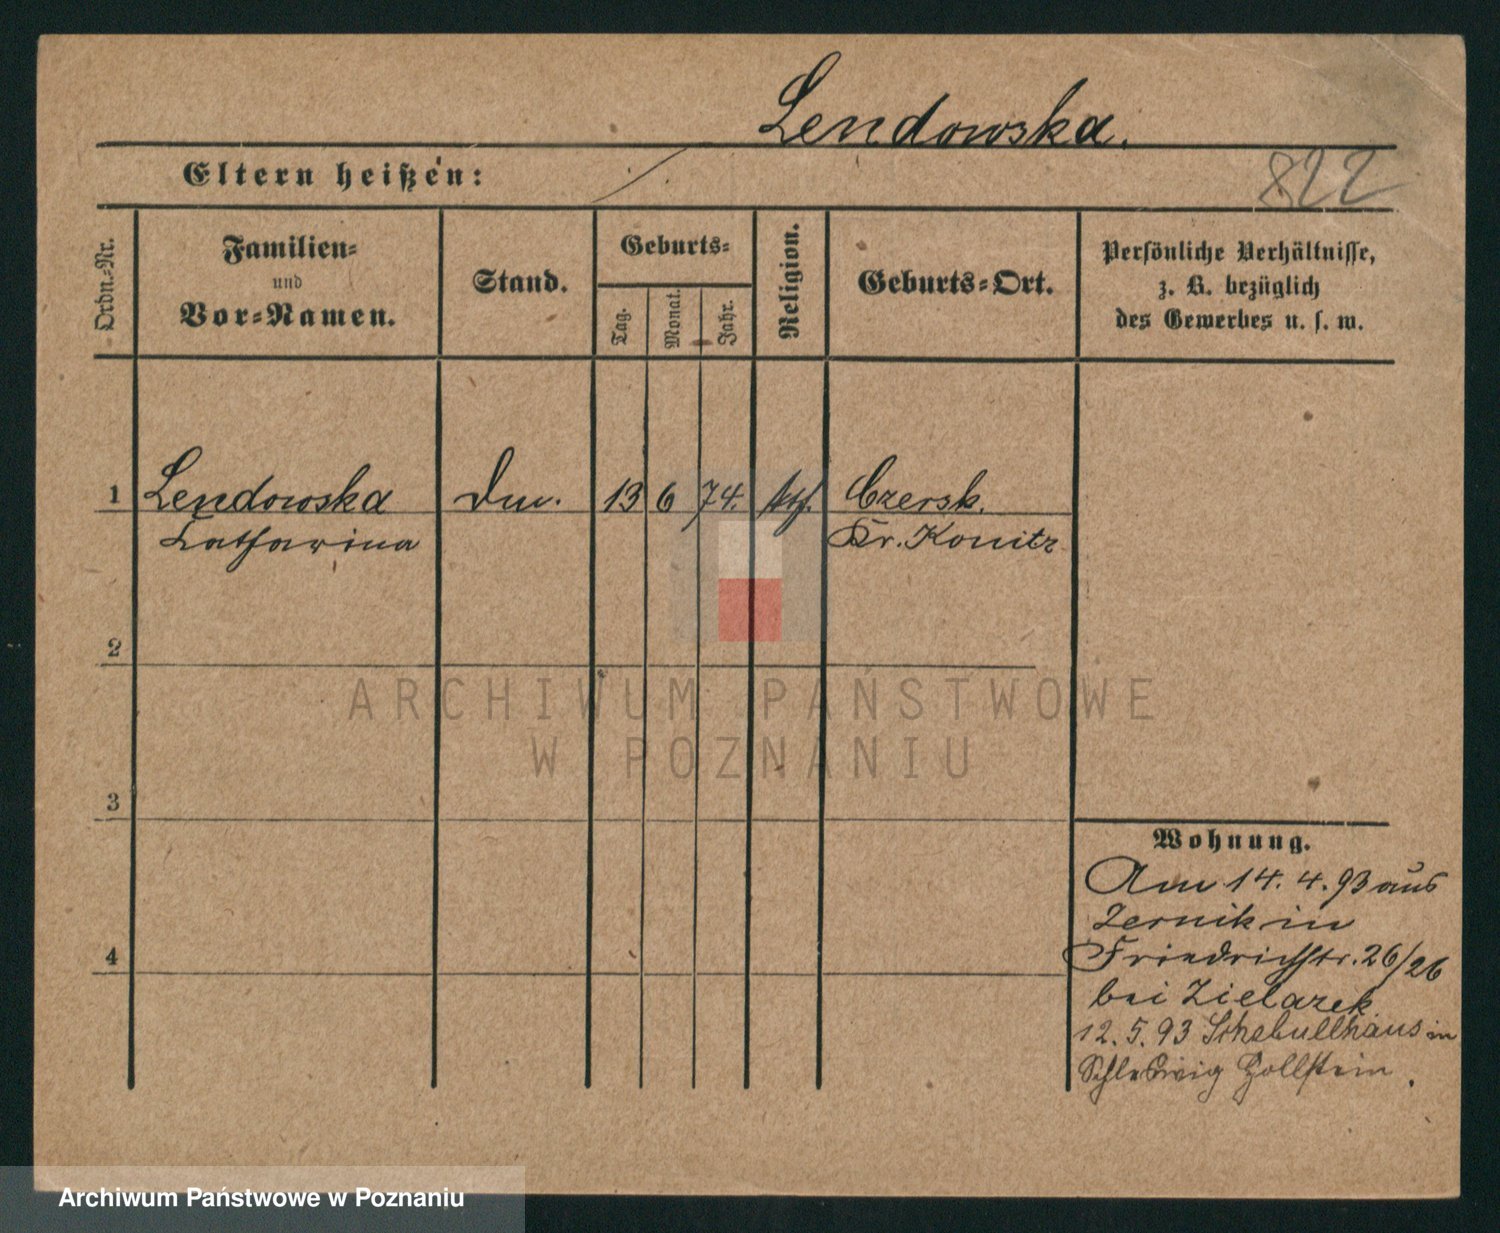 Lendowska.
Eltern heißen:
822
Ordn.-Nr.
Familien-
und
Vor-Namen.
Stand.
Geburts-
Tag.
Monat.
Jahr.
Religion.
Geburts-Ort.
Persönliche Verhältnisse,
z. B. bezüglich
des Gewerbes u. s. w.
1 Lendowska Dm. 13 6 74. kth. Czersk.
Catharina Kr. Konitz
2
3
4
Wohnung.
Am 14. 4. 93 aus
Zernik in
Friedrichstr. 26/26
bei Zielazek
12. 5. 93 in
Schleswig Hollstein.
ARCHIWUM PAŃSTWOWE
W POZNANIU
Archiwum Państwowe w Poznaniu